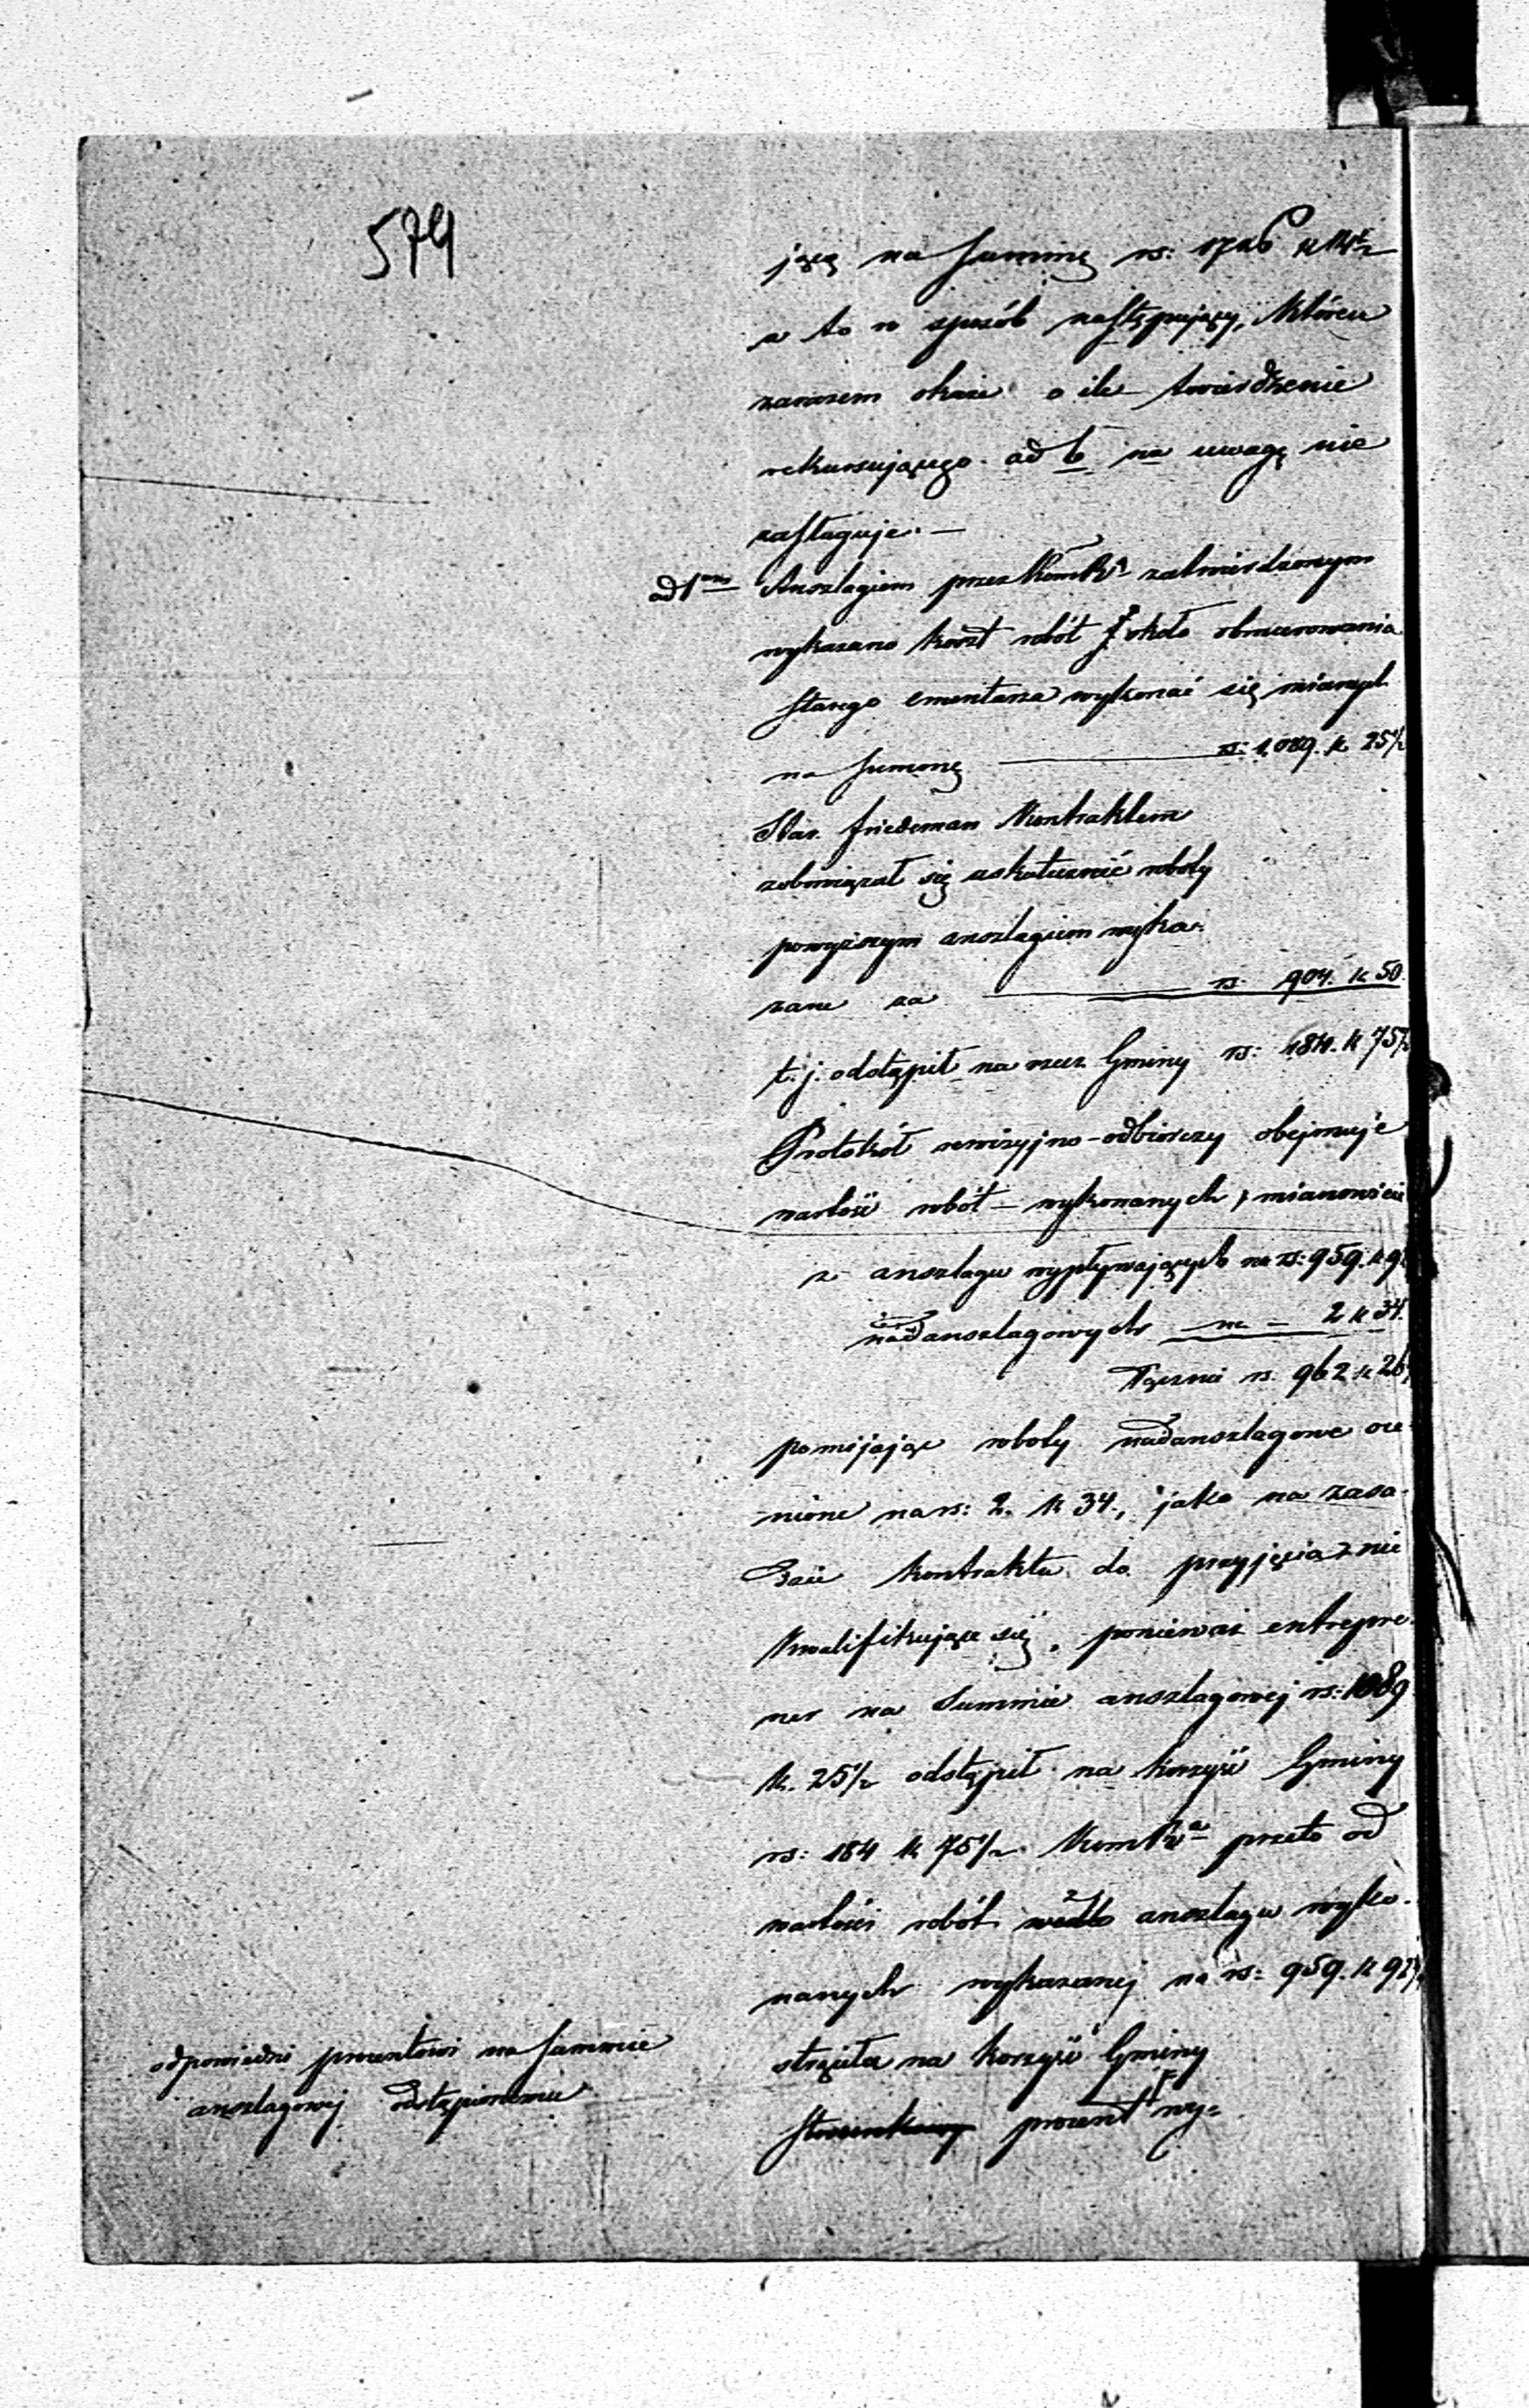 574
jącą na Summę rs: 1726 k 14½
a to w sposób następujący, któren
zarazem okaże o ile twierdzenie
rekursującego ad 6 na uwagę nie
zasługuje. —
ad 1um Anszlagiem przez zatwierdzonym
wykazano koszt robót około obmurowania
starego cmentarza wykonać się mianych
na Summę — rs: 1,089. k 25½
Star. Friedeman Kontraktem
zobowiązał się uskutecznić roboty
powyższym anszlagiem wyka-
zane za — rs. 904. k 50.
t. j. odstąpił na rzecz Gminy rs: 184. k 75½
Protokół rewizyjno-odbiorczy obejmuje
wartość robót wykonanych, mianowicie
z anszlagu wypływających na rs: 959. k 92
nadanszlagowych — na — 2 k 34.
Łącznie rs. 962 k 26
pomijając roboty nadanszlagowe oce-
nione na rs: 2. k 34., jako na zasa-
dzie kontraktu do przyjęcia nie
kwalifikujące się, ponieważ entrepre-
ner na Summie anszlagowej rs: 1089
k. 25½ odstąpił na korzyść Gminy
rs: 184 k 75½ przeto od
wartości robót wedle anszlagu wyko-
nanych wykazanej na rs: 959. k 92
strąciła na korzyść Gminy
stosunkowy procent wy-
odpowiedni procentowi na Summie
anszlagowej odstąpionemu